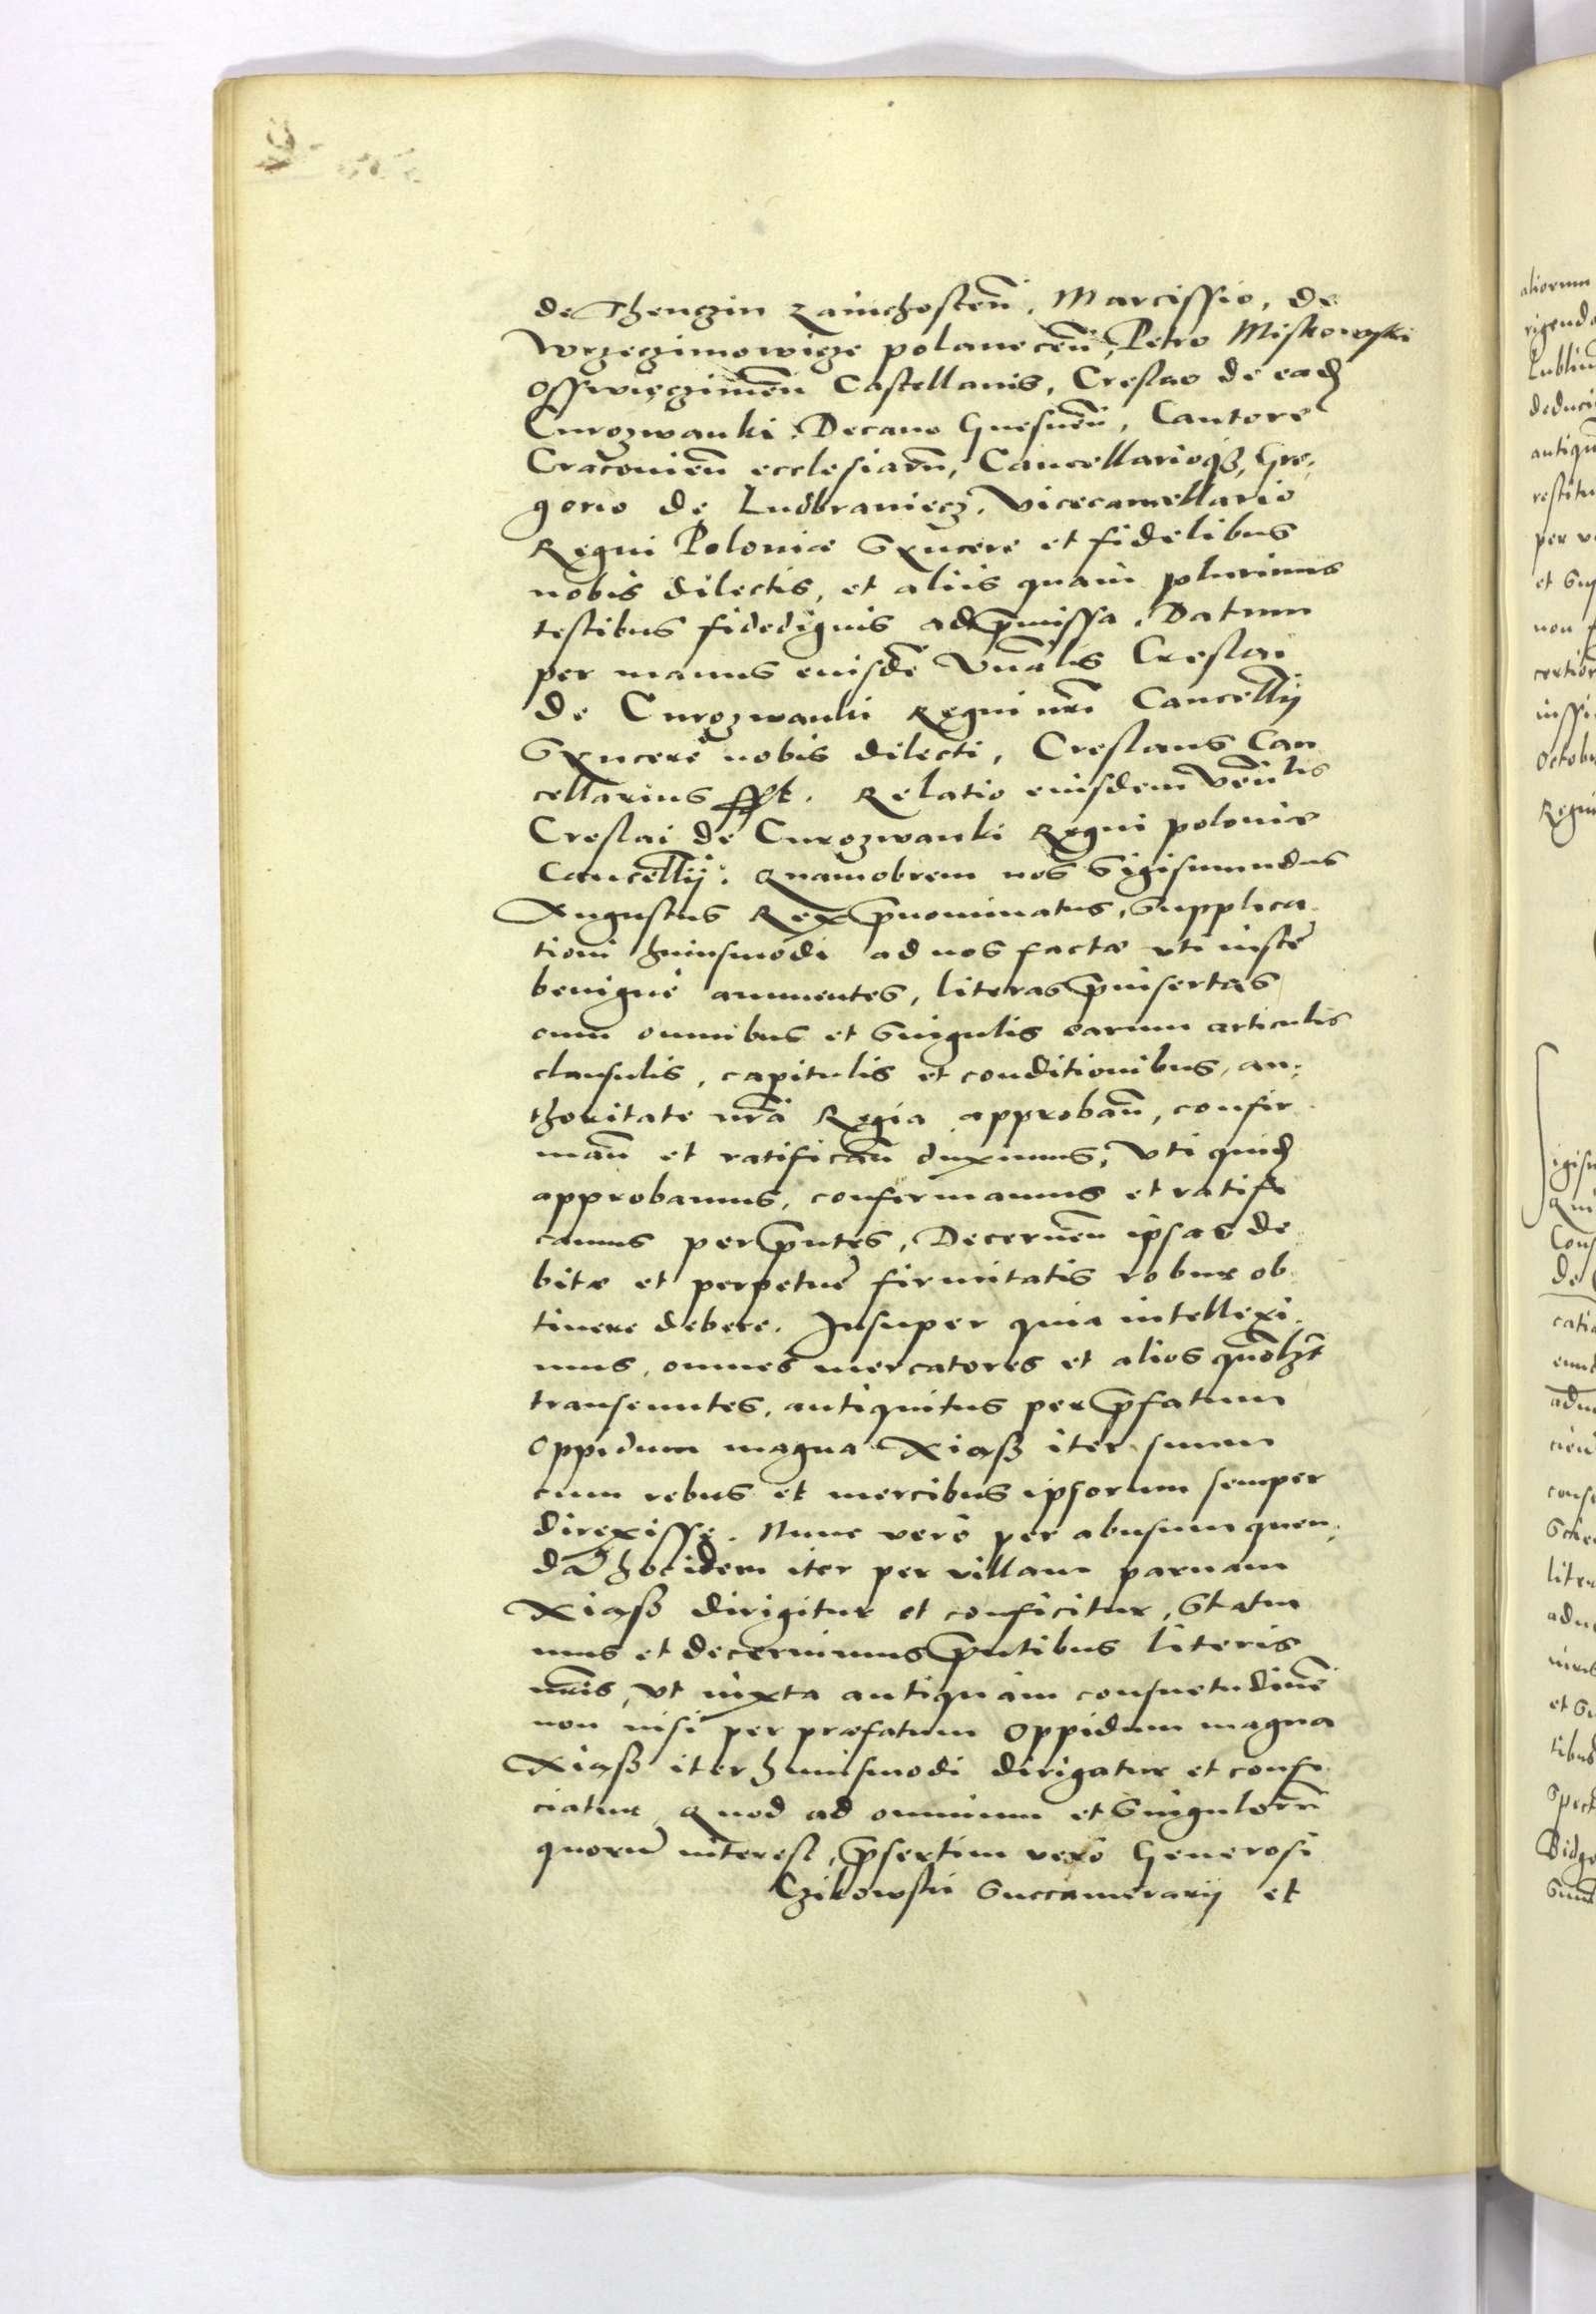 de Thenczin Zawichosten̄, Marcissio, de
Wrzeczimowicze polanecen̄, Petro Miskowski
Osswięczimen̄ Castellanis, Creslao de eadē
Curozwanki Decano Gnesnen̄, Cantore
Cracovien̄ ecclesiarū, Cancellarioqȝ, Gre,
gorio de Ludbraniecz, Vicecancellario
Regni Poloniæ Syncere et fidelibus
nobis dilectis, et aliis quam plurimis
testibus fidedignis ad p̄missa. Datum
per manus eiusdē Vn̄alis Creslai
de Curozwanki Regni nr̄i Cancell̄ij
Syncere nobis dilecti, Creslaus Can
cellarius sspt. Relatio eiusdem ven̄lis
Creslai de Curozwanki Regni poloniæ
Cancell̄ij. Quamobrem nos Sigismundus
Augustus Rex p̄nominatus, Supplica
tioni huiusmodi ad nos factæ uti iustę
benigne annuentes, literas p̄insertas
cum omnibus et singulis earum articulis
clausulis, capitulis et conditionibus, au,
thoritate nr̄a Regia approban̄, confir
man̄ et ratifican̄ duximus, Uti quidē
approbamus, confirmamus et ratifi
camus per p̄ntes, Decernen̄ ipsas de
bitæ et perpetuę firmitatis robur ob
tinere debere. Insuper quia intellexi,
mus, omnes mercatores et alios quōlibet
transeuntes, antiquitus per p̄fatum
Oppidum magna Xiąsz iter suum
cum rebus et mercibus ipsorum semper
direxisse. Nunc vero per abusum quen,
dā hoc idem iter per villam parvam
Xiąsz dirigitur et conficitur, Statui
mus et decernimus p̄ntibus literis
nr̄is, ut iuxta antiquam consuetudinē
non nisi per præfatum Oppidum magna
Xiąsz iter huiusmodi dirigatur et confi
ciatur Quod ad omnium et singulorū
quorū interest, p̄sertim vero Generosi
Czikowski Succamerarij et